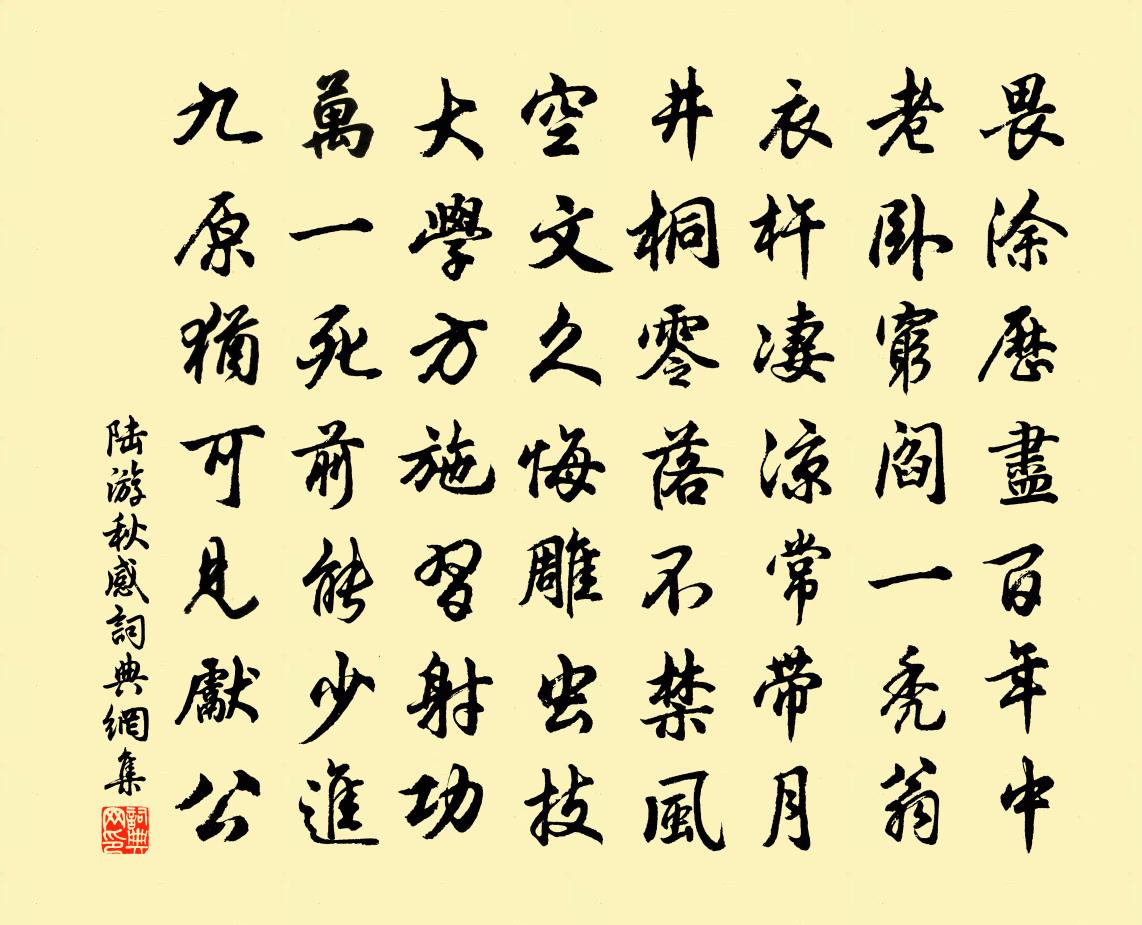 畏涂歷盡百年中
老卧窮閻一禿翁
衣杵凄涼常帶月
井桐零落不禁風
空文久悔雕虫技
大學方施習射功
萬一死前能少進
九原猶可見獻公
陸游秋感詞典網集
詞典网印